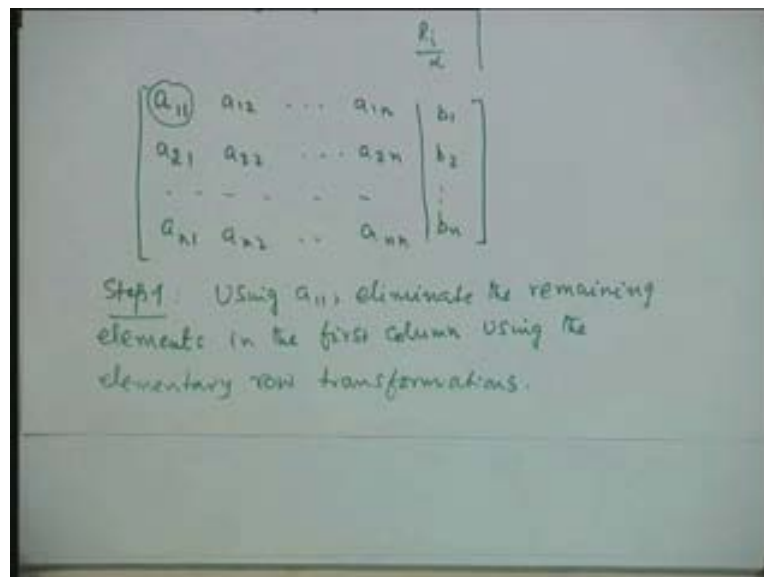 Ri/α
a11 a12 ... a1n | b1
a21 a22 ... a2n | b2
. . - . . - | :
an1 an2 .. ann | bn
Step1: Using a11, eliminate the remaining
elements in the first column using the
elementary row transformations.